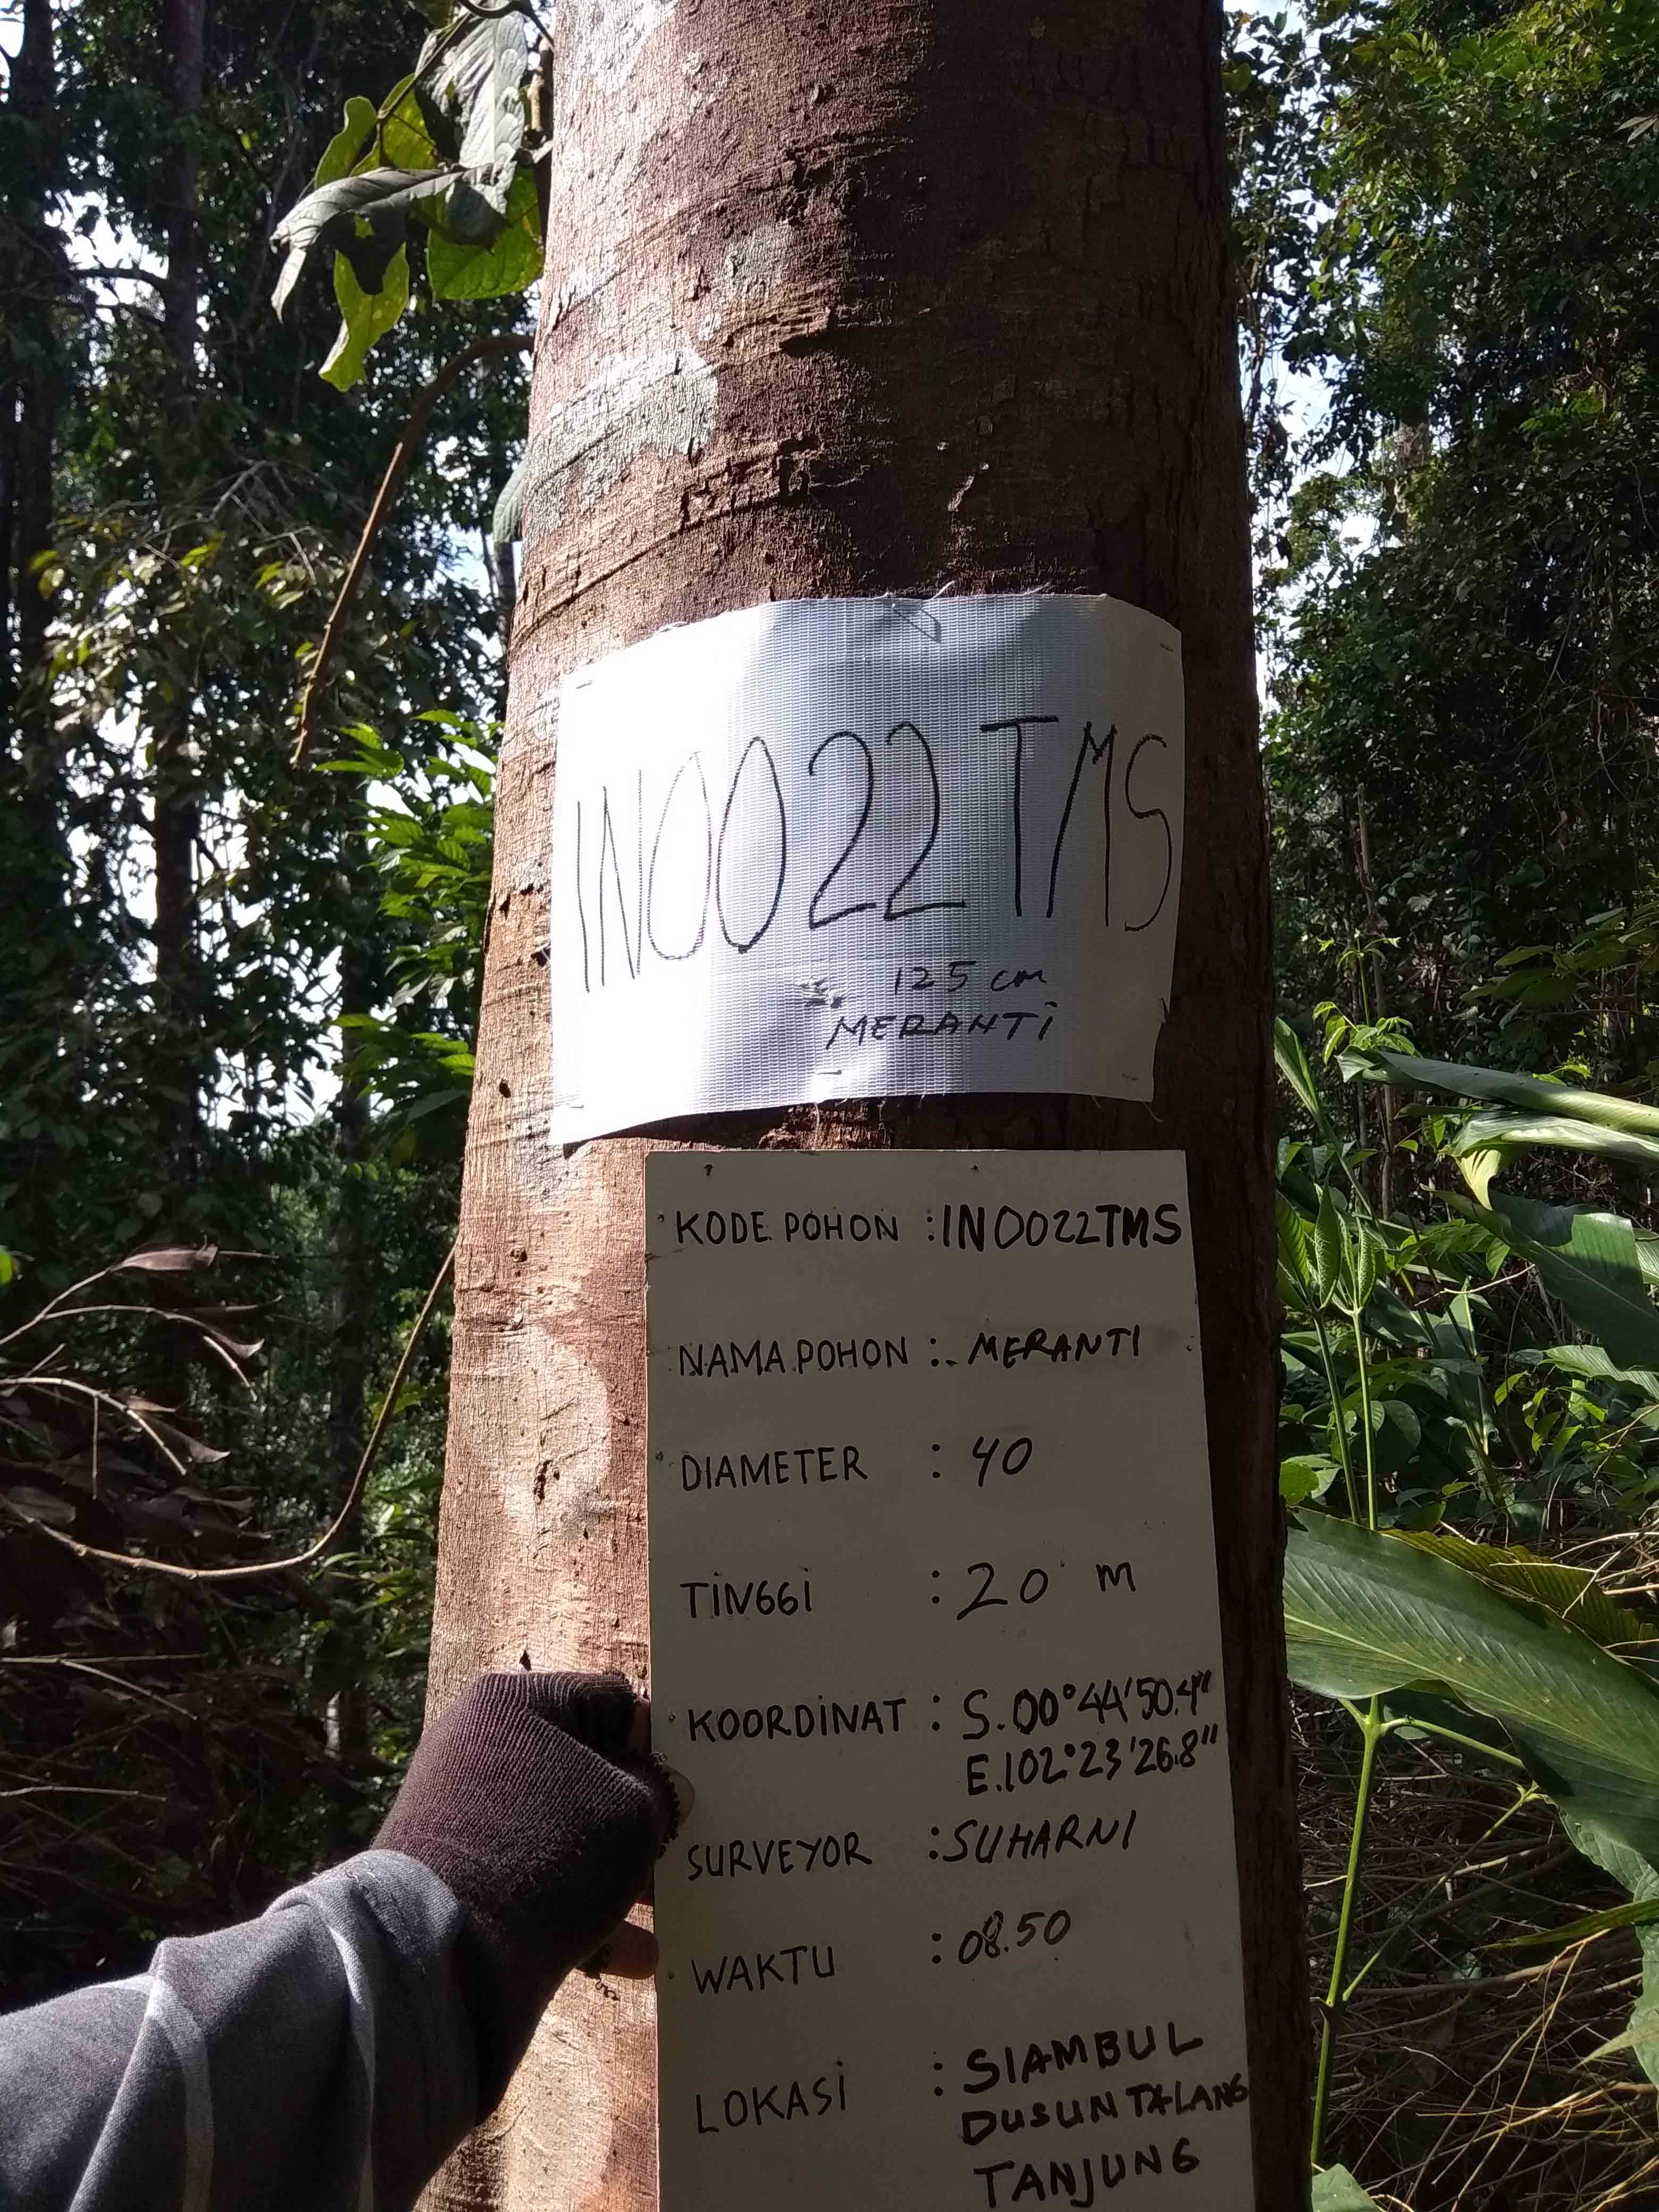 IN0022TMS
125 cm
MERANTI
KODE POHON : IN0022TMS
NAMA POHON : MERANTI
DIAMETER : 40
TINGGI : 20 m
KOORDINAT : S.00°44'50.4"
E.102°23'26.8"
SURVEYOR : SUHARNI
WAKTU : 08.50
LOKASI : SIAMBUL
DUSUN TALANG
TANJUNG